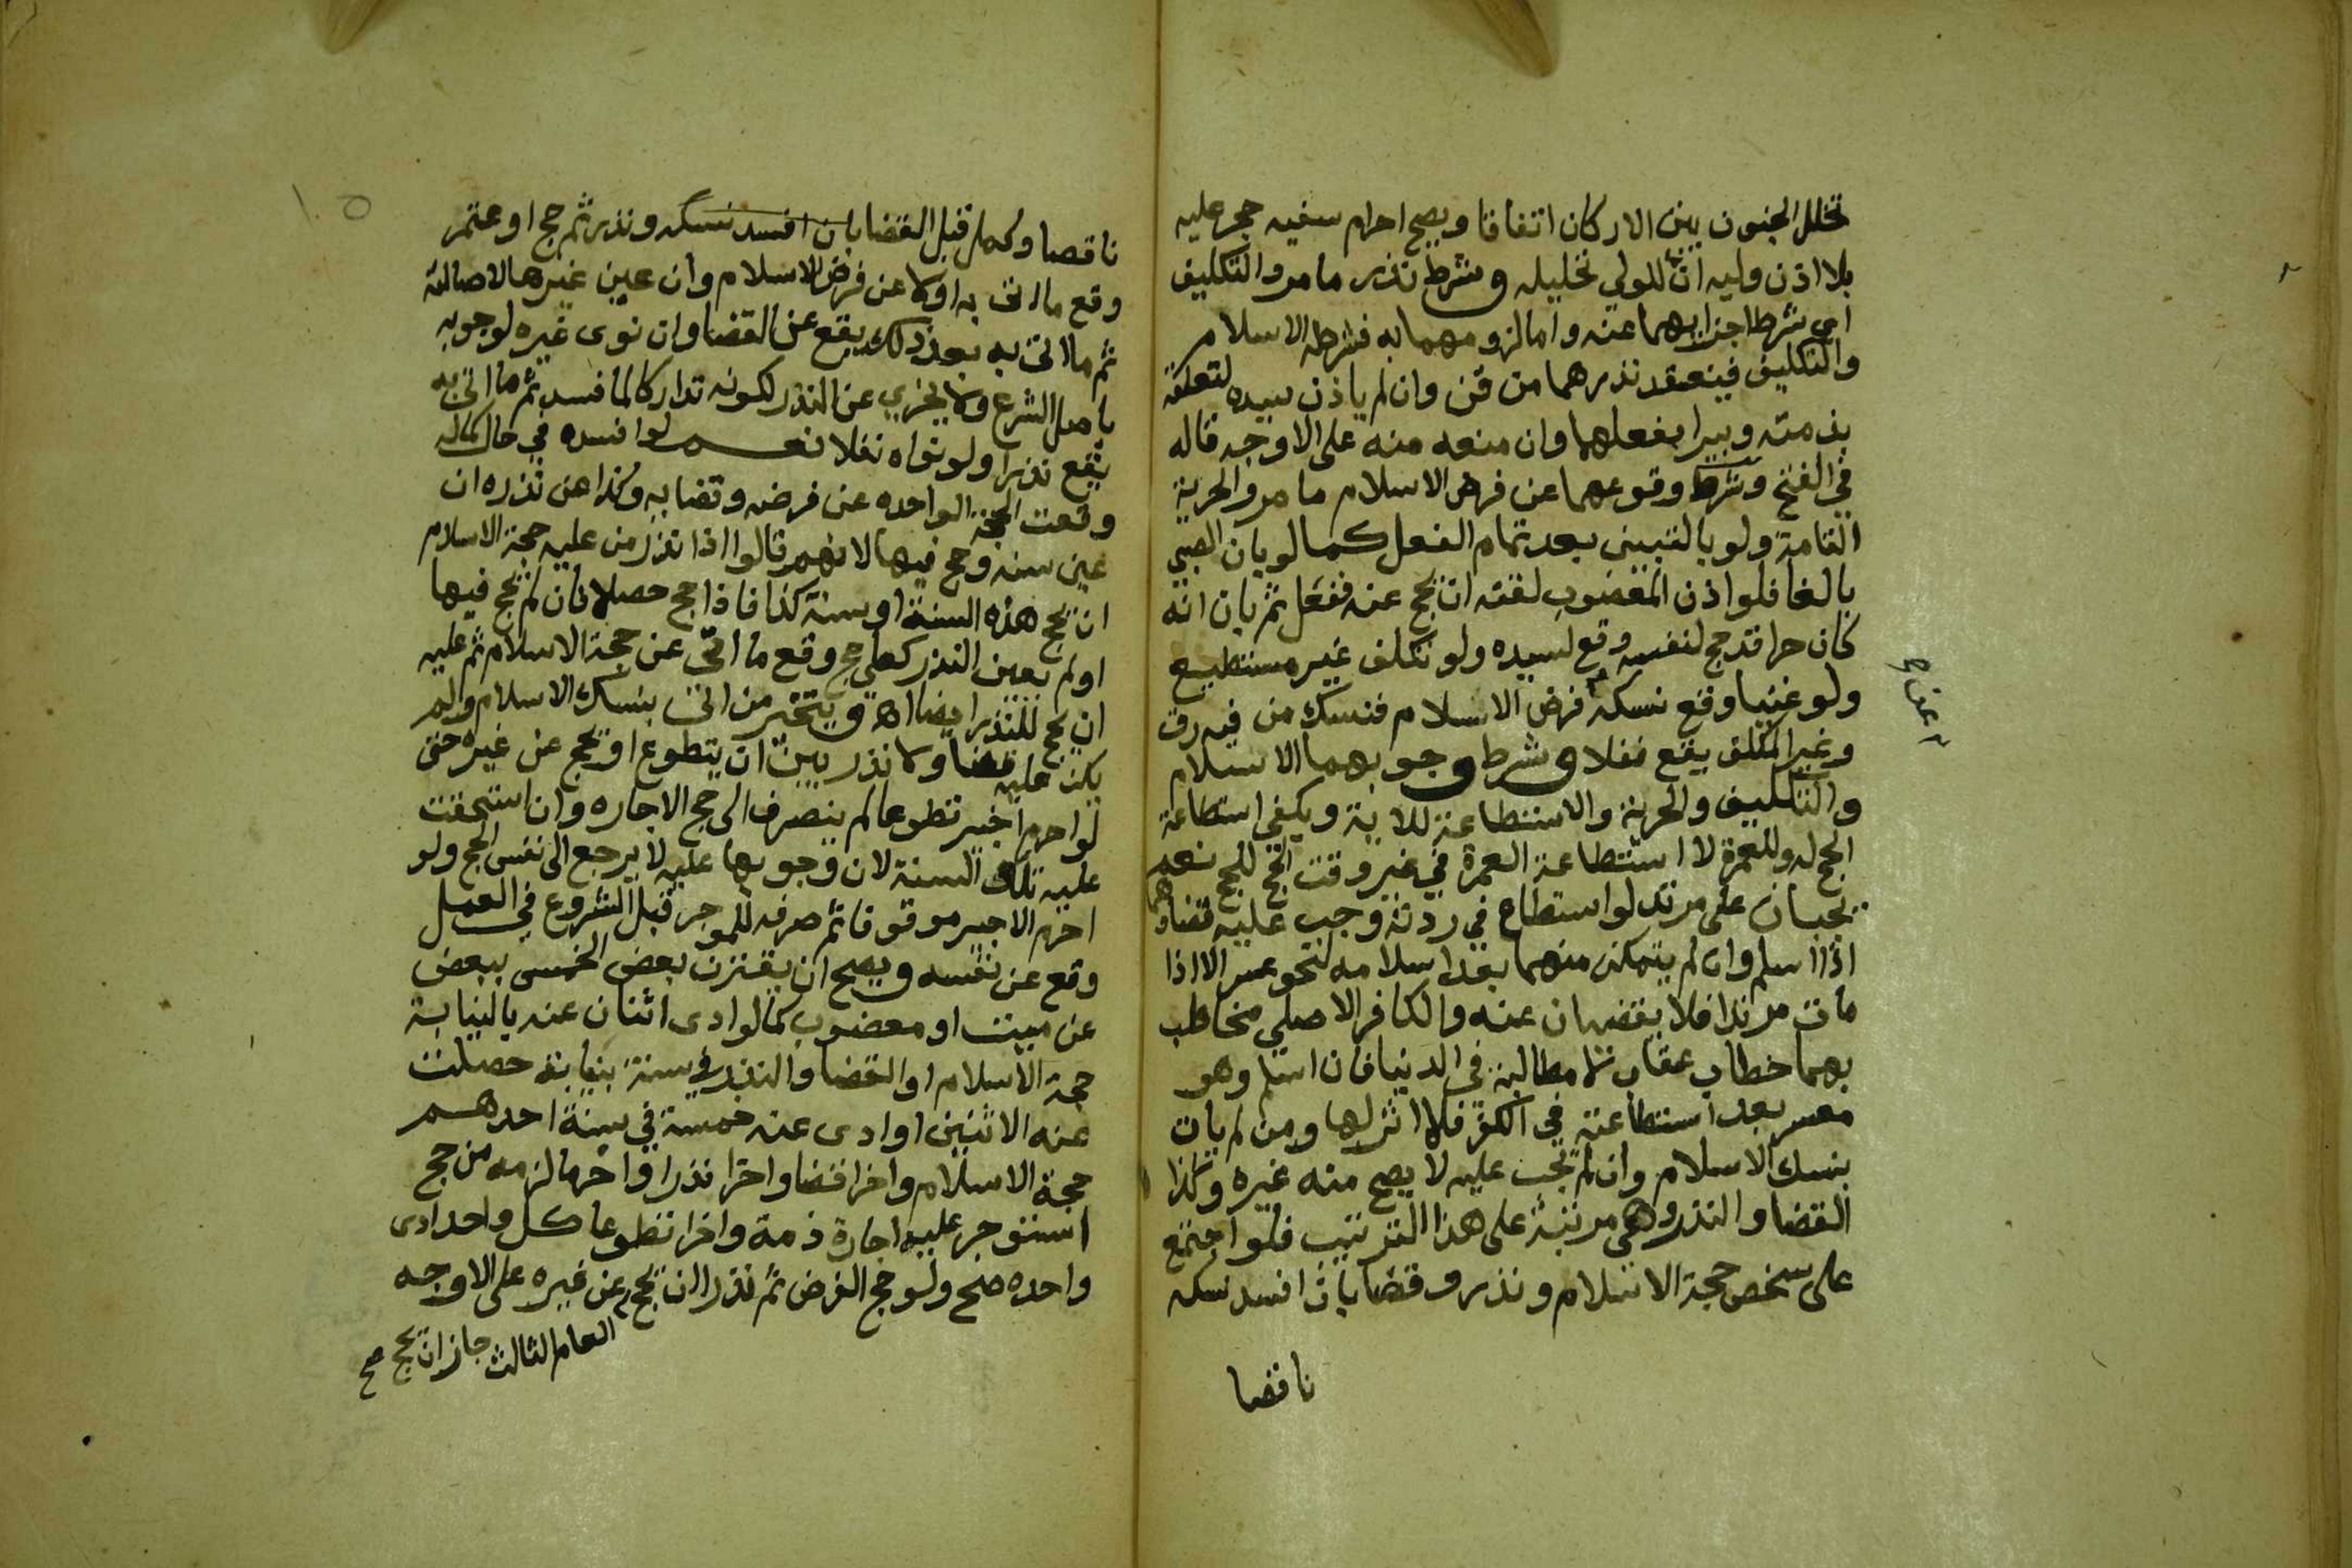 تخلل الجنون بين الاركان اتفاقا ويصح احرام سفيه حجر عليه
بلا اذن وليه ان للولي تحليله وشرط نذر ما مر والتكليف
اي شرط اجزايهما عنه واما لزومهما به فشرطه الاسلام
والتكليف فينعقد نذرهما من قن وان لم ياذن سيده لتعلقه
بذمته ويبرا بفعلهما وان منعه منه على الاوجه قاله
في الفتح وشرط وقوعهما عن فرض الاسلام ما مر والحرية
التامة ولو بالتبيين بعد تمام الفعل كما لو بان الصبي
بالغا فلو اذن المعضوب لقنه ان يحج عنه ففعل ثم بان انه
كان حرا قد حج لنفسه وقع لسيده ولو تكلف غير مستطيع
ولو غنيا وقع نسكه فرض الاسلام فنسك من فيه رق
عن ٢ صح
وغير المكلف يقع نفلا وشرط وجوبهما الاسلام
والتكليف والحرية والاستطاعة للاية ويكفي استطاعة
الحج له وللعمرة لا استطاعة العمرة في غير وقت الحج للحج نعم
يجبان على مرتد لو استطاع في ردته وجب عليه قضاوهما
اذا اسلم وان لم يتمكن منهما بعد اسلامه لنحو عسر الا اذا
مات مرتدا فلا يقضيان عنه والكافر الاصلي مخاطب
بهما خطاب عقاب لا مطالبة في الدنيا فان اسلم وهو
معسر بعد استطاعته في الكفر فلا اثر لها ومن لم يات
بنسك الاسلام وان لم تجب عليه لا يصح منه غيره وكذا
القضا والنذر وهي مرتبة على هذا الترتيب فلو اجتمع
على شخص حجة الاسلام ونذر وقضا بان افسد نسكه
ناقصا
١٥
ناقصا وكمل قبل القضا بان افسد نسكه ونذر ثم حج او عتمر
وقع ما اتى به اولا عن فرض الاسلام وان عين غيرها لاصالته
ثم ما اتى به بعد ذلك يقع عن القضا وان نوى غيره لوجوبه
باصل الشرع ولا يجزي عن النذر لكونه تداركا لما فسد ثم ما اتى به
يقع نذرا ولو نواه نفلا نعم لو افسده في حال كماله
وقعت الحجة الواحده عن فرضه وقضايه وكذا عن نذره ان
عين سنه وحج فيها لانهم قالوا اذا نذر من عليه حجة الاسلام
ان يحج هذه السنة او سنة كذا فاذا حج حصلا فان لم يحج فيها
او لم يعين النذر كعلي حج وقع ما اتى عن حجة الاسلام ثم عليه
ان يحج للنذر ايضا اه ويتخير من اتى بنسك الاسلام ولم
يكن عليه قضا ولا نذر بين ان يتطوع او يحج عن غيره حتى
لو احرم اجير تطوعا لم ينصرف الى حج الاجاره وان استحقت
عليه تلك السنة لان وجوبها عليه لا يرجع الى نفس الحج ولو
احرم الاجير موقوفا ثم صرفه للموجر قبل الشروع في العمل
وقع عن نفسه ويصح ان يقترن بعض الخمس ببعض
عن ميت او معضوب كما لو ادى اثنان عنه بالنيابة
حجة الاسلام او القضا والنذر في سنة بنيابة حصلت
عنه الاثنين او ادى عنه خمسة في سنة احدهم
حجة الاسلام واخر قضا واخر نذرا واخر ما لزمه من حج
استوجر عليه اجارة ذمة واخر تطوعا كل واحد ادى
واحده صح ولو حج الفرض ثم نذر ان يحج عن غيره على الاوجه
العام الثالث جاز ان يحج صح